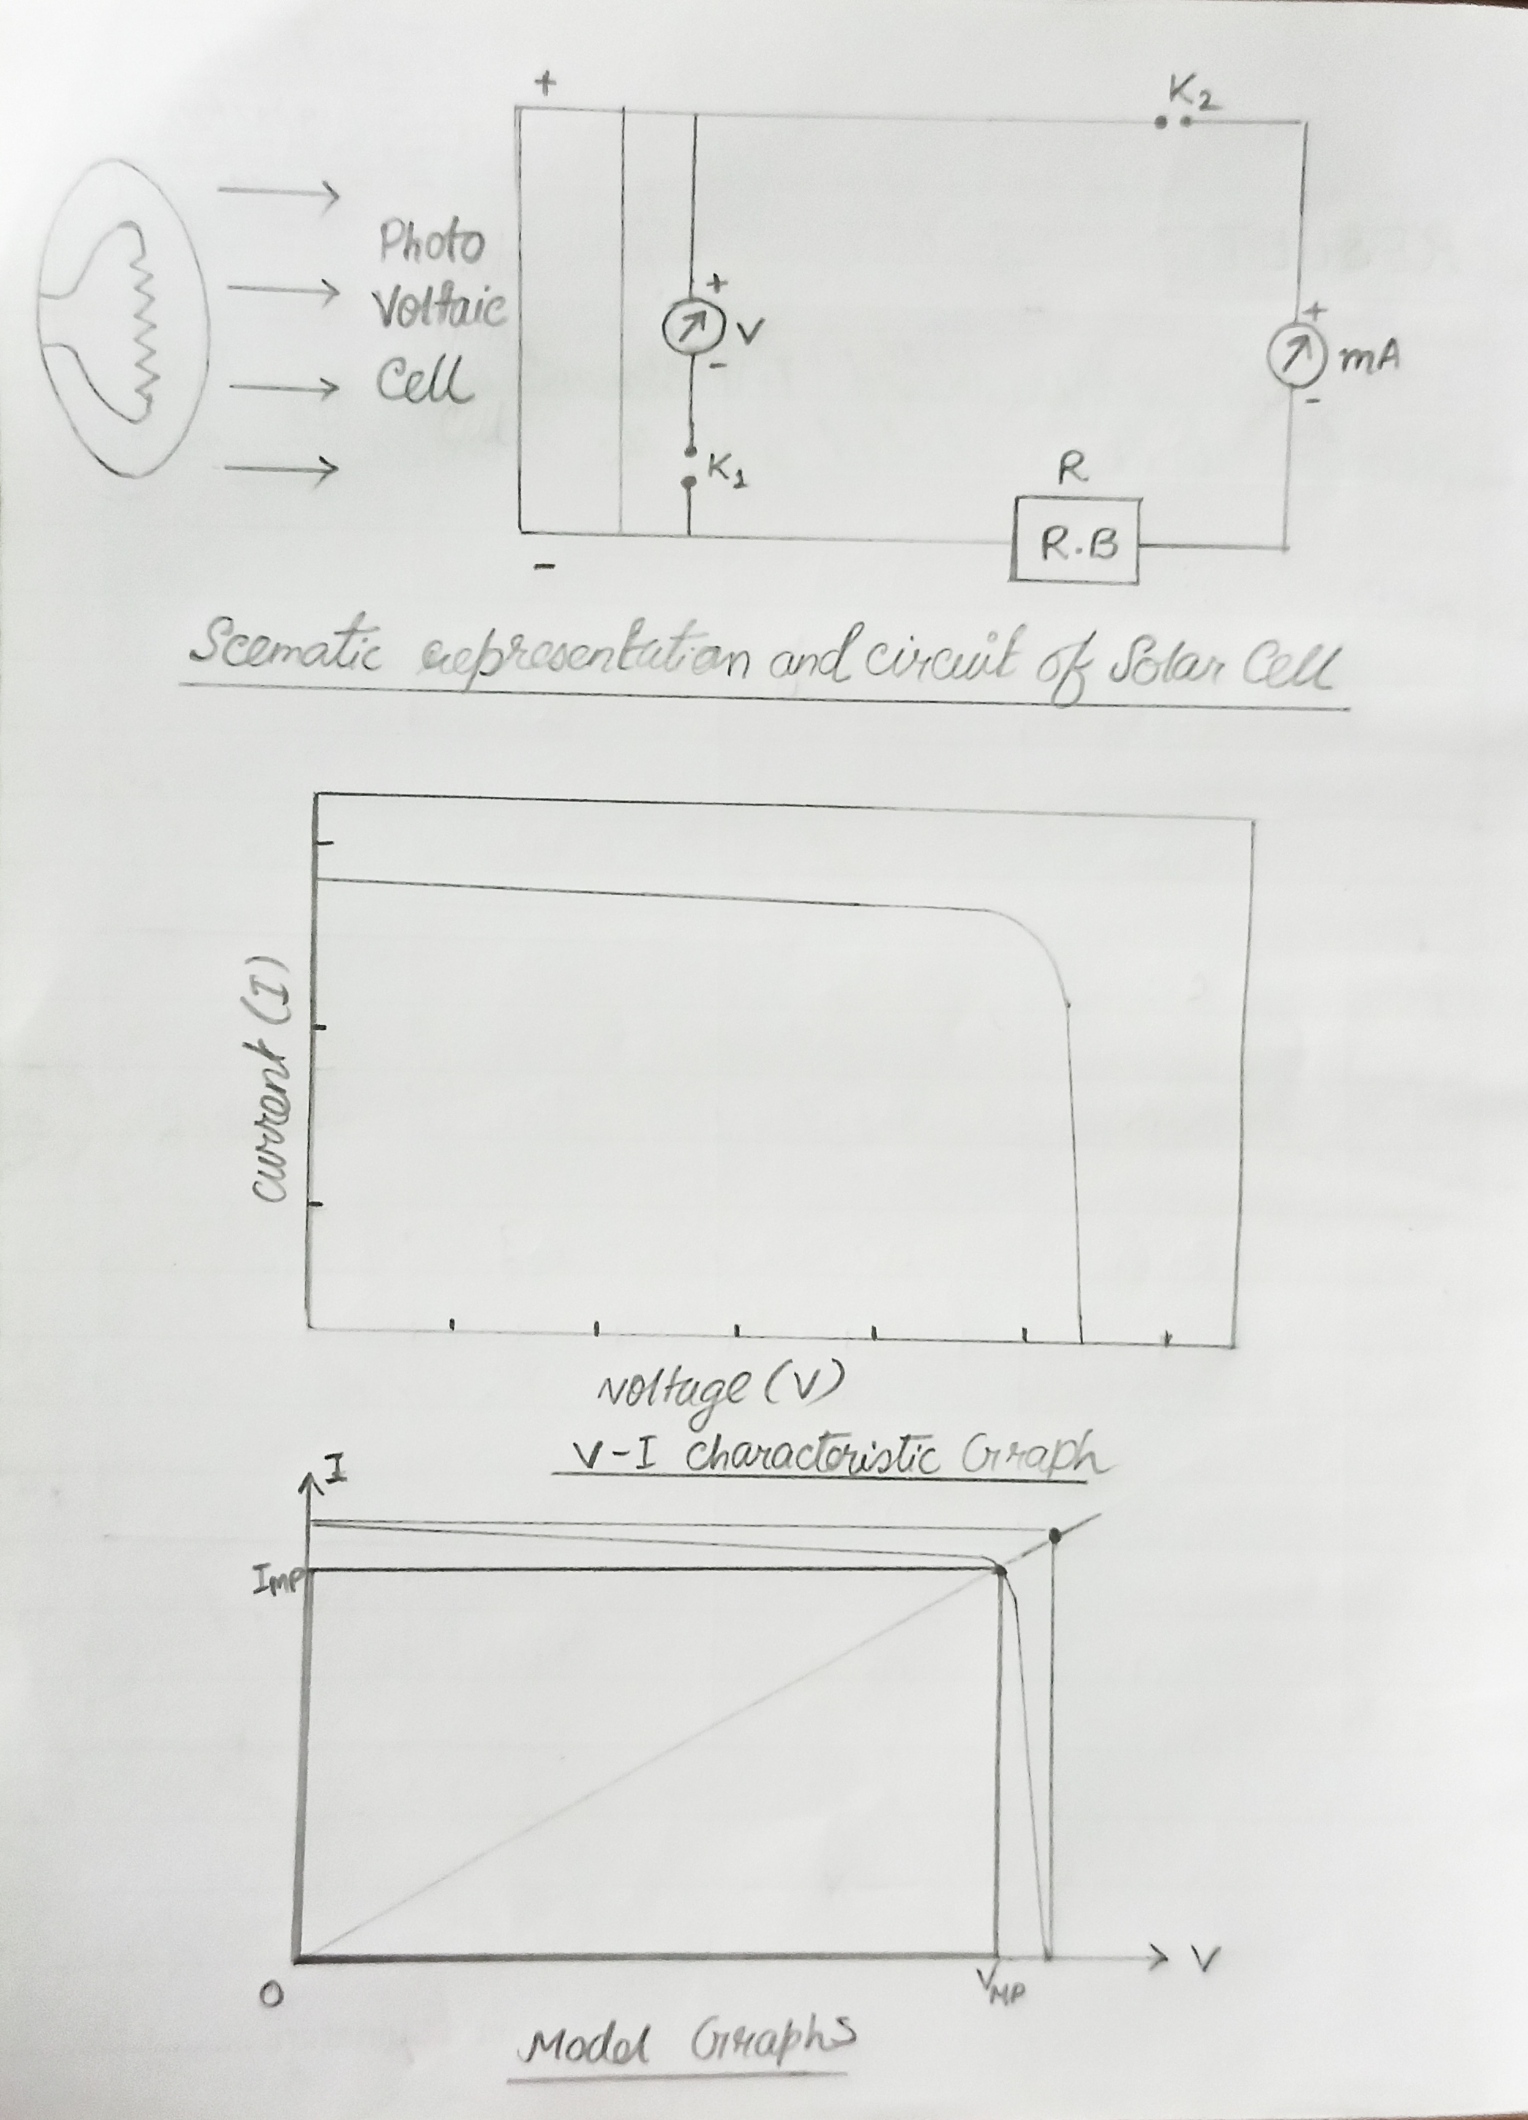 +
K2
Photo
Voltaic
Cell
+
V
-
K1
+
mA
-
R
R.B
-
Scematic representation and circuit of Solar Cell
Current (I)
Voltage (V)
V-I Characteristic Graph
I
IMP
O
VMP
V
Model Graphs